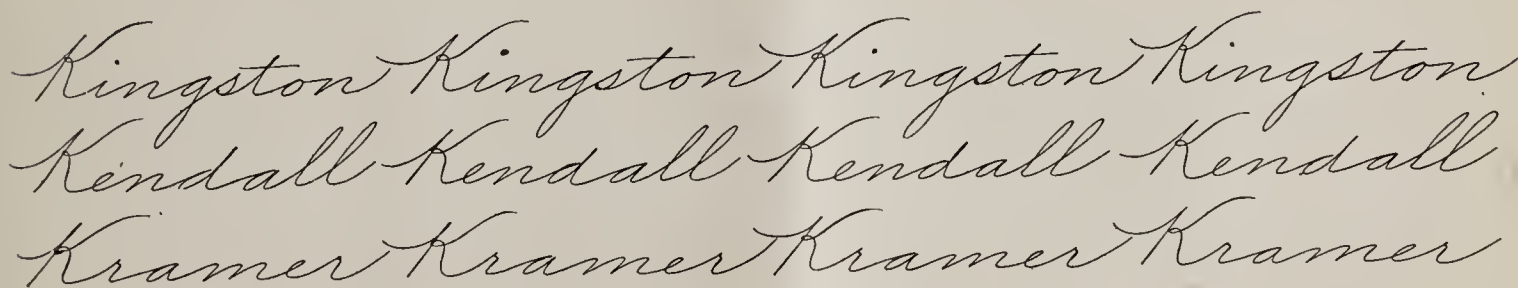 Kingston Kingston Kingston Kingston
Kendall Kendall Kendall Kendall
Kramer Kramer Kramer Kramer